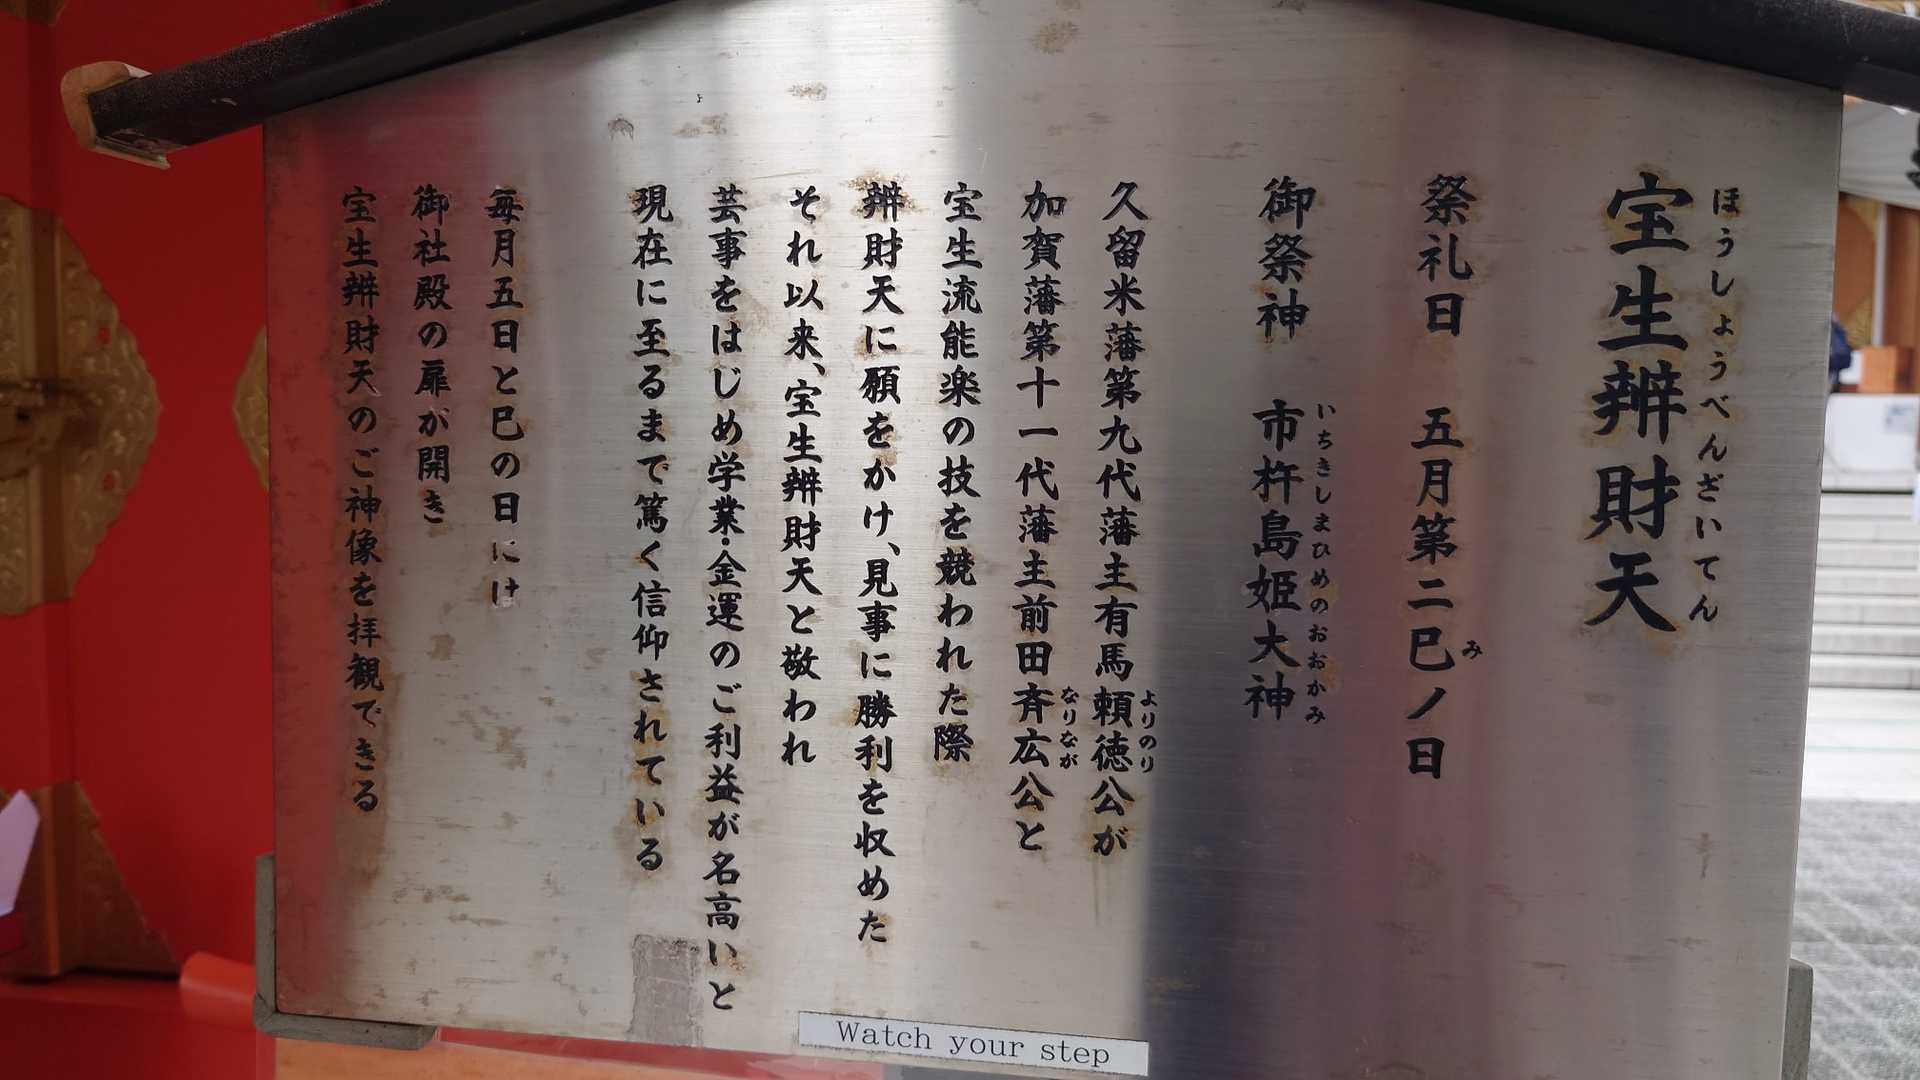 宝生辨財天
ほうしょうべんざいてん
祭礼日　五月第二巳ノ日
み
御祭神　市杵島姫大神
いちきしまひめのおおかみ
久留米藩第九代藩主有馬頼徳公が
よりのり
加賀藩第十一代藩主前田斉広公と
なりなが
宝生流能楽の技を競われた際
辨財天に願をかけ、見事に勝利を収めた
それ以来、宝生辨財天と敬われ
芸事をはじめ学業・金運のご利益が名高いと
現在に至るまで篤く信仰されている
毎月五日と巳の日にけ
御社殿の扉が開き
宝生辨財天のご神像を拝観できる
Watch your step